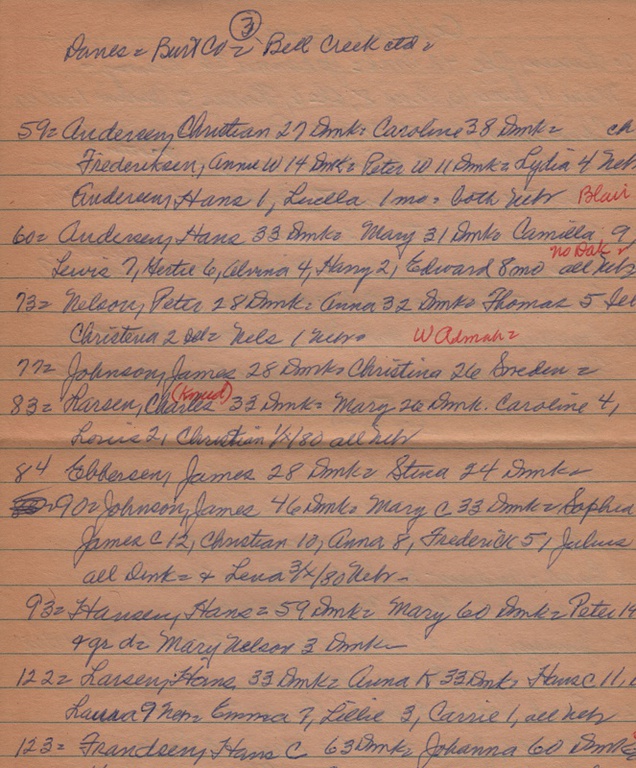 3
Danes = Burt Co = Bell Creek ctd =
59 = Andersen, Christian 27 Dmk = Caroline 38 Dmk = ch
Frederiksen, Annie W 14 Dmk = Peter W 11 Dmk = Lydia 4 Neb
Andersen, Hans 1, Luella 1 mo = both Nebr Blair
60 = Andersen, Hans 33 Dmk = Mary 31 Dmk = Camilla 9
no Dak =
Lewis 7, Hertie 6, Alvina 4, Harry 2, Edward 8 mo all Nebr
73 = Nelson, Peter 28 Dmk = Anna 32 Dmk = Thomas 5
Christena 2 = Nels 1 Nebr = W Admah =
77 = Johnson, James 28 Dmk = Christina 26 Sweden =
(Knud)
83 = Larsen, Charles 33 Dmk = Mary 26 Dmk. Caroline 4,
Louis 2, Christian 1/x/80 all Nebr
84 Ebbersen, James 28 Dmk = Stena 24 Dmk =
90 = Johnson, James 46 Dmk = Mary C 33 Dmk = Sophia
James C 12, Christian 10, Anna 8, Frederick 5, Julius
all Dmk = + Lena 3/x/80 Nebr -
93 = Hansen, Hans = 59 Dmk = Mary 60 Dmk = Peter 14
+ gr d = Mary Nelson 3 Dmk -
122 = Larsen, Hans 33 Dmk = Anna K 33 Dmk = Hans C 11,
Laura 9 = Emma 7, Lillie 3, Carrie 1, all Nebr
123 = Frandsen, Hans C 63 Dmk = Johanna 60 Dmk =